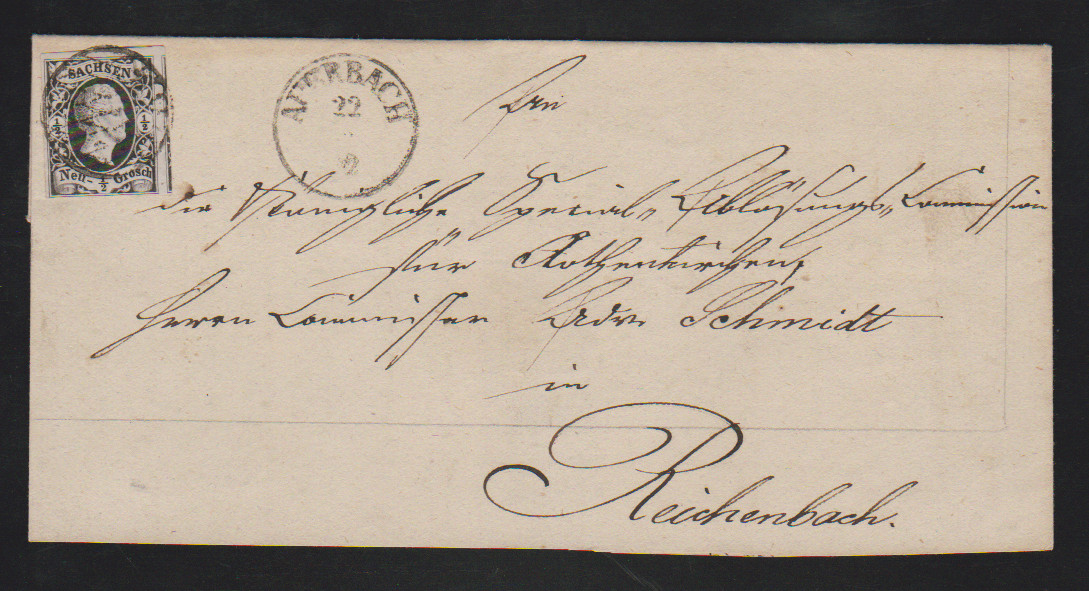 SACHSEN
½ ½
Neu- ½ Grosch
AUERBACH
22
An
die Königliche Special-Ablösungs-Commission
für Rothenkirchen,
Herrn Commissar Adv. Schmidt
in
Reichenbach.